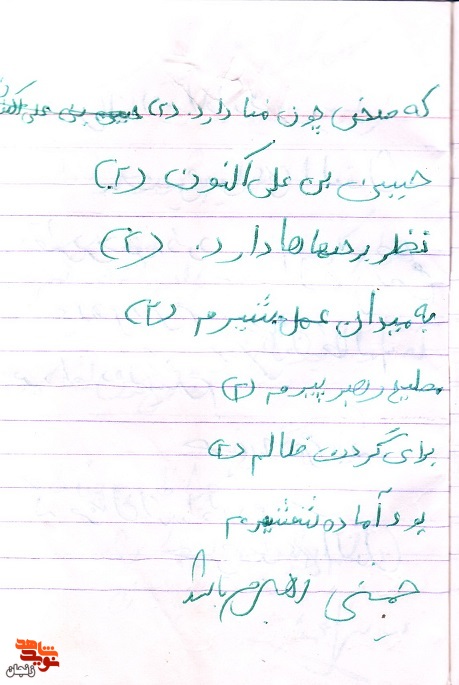 که صحنی چون منا دارد. (۲) حسین بن علی اکنون
حسین بن علی اکنون (۲)
نظر بر جبهه‌ها دارد. (۲)
به میدان عمل شیرم (۲)
مطیع رهبر پیرم (۲)
برای گردن ظالم (۲)
بود آماده شمشیرم
خمینی رهبرم باشد
نوید شاهد
زنجان